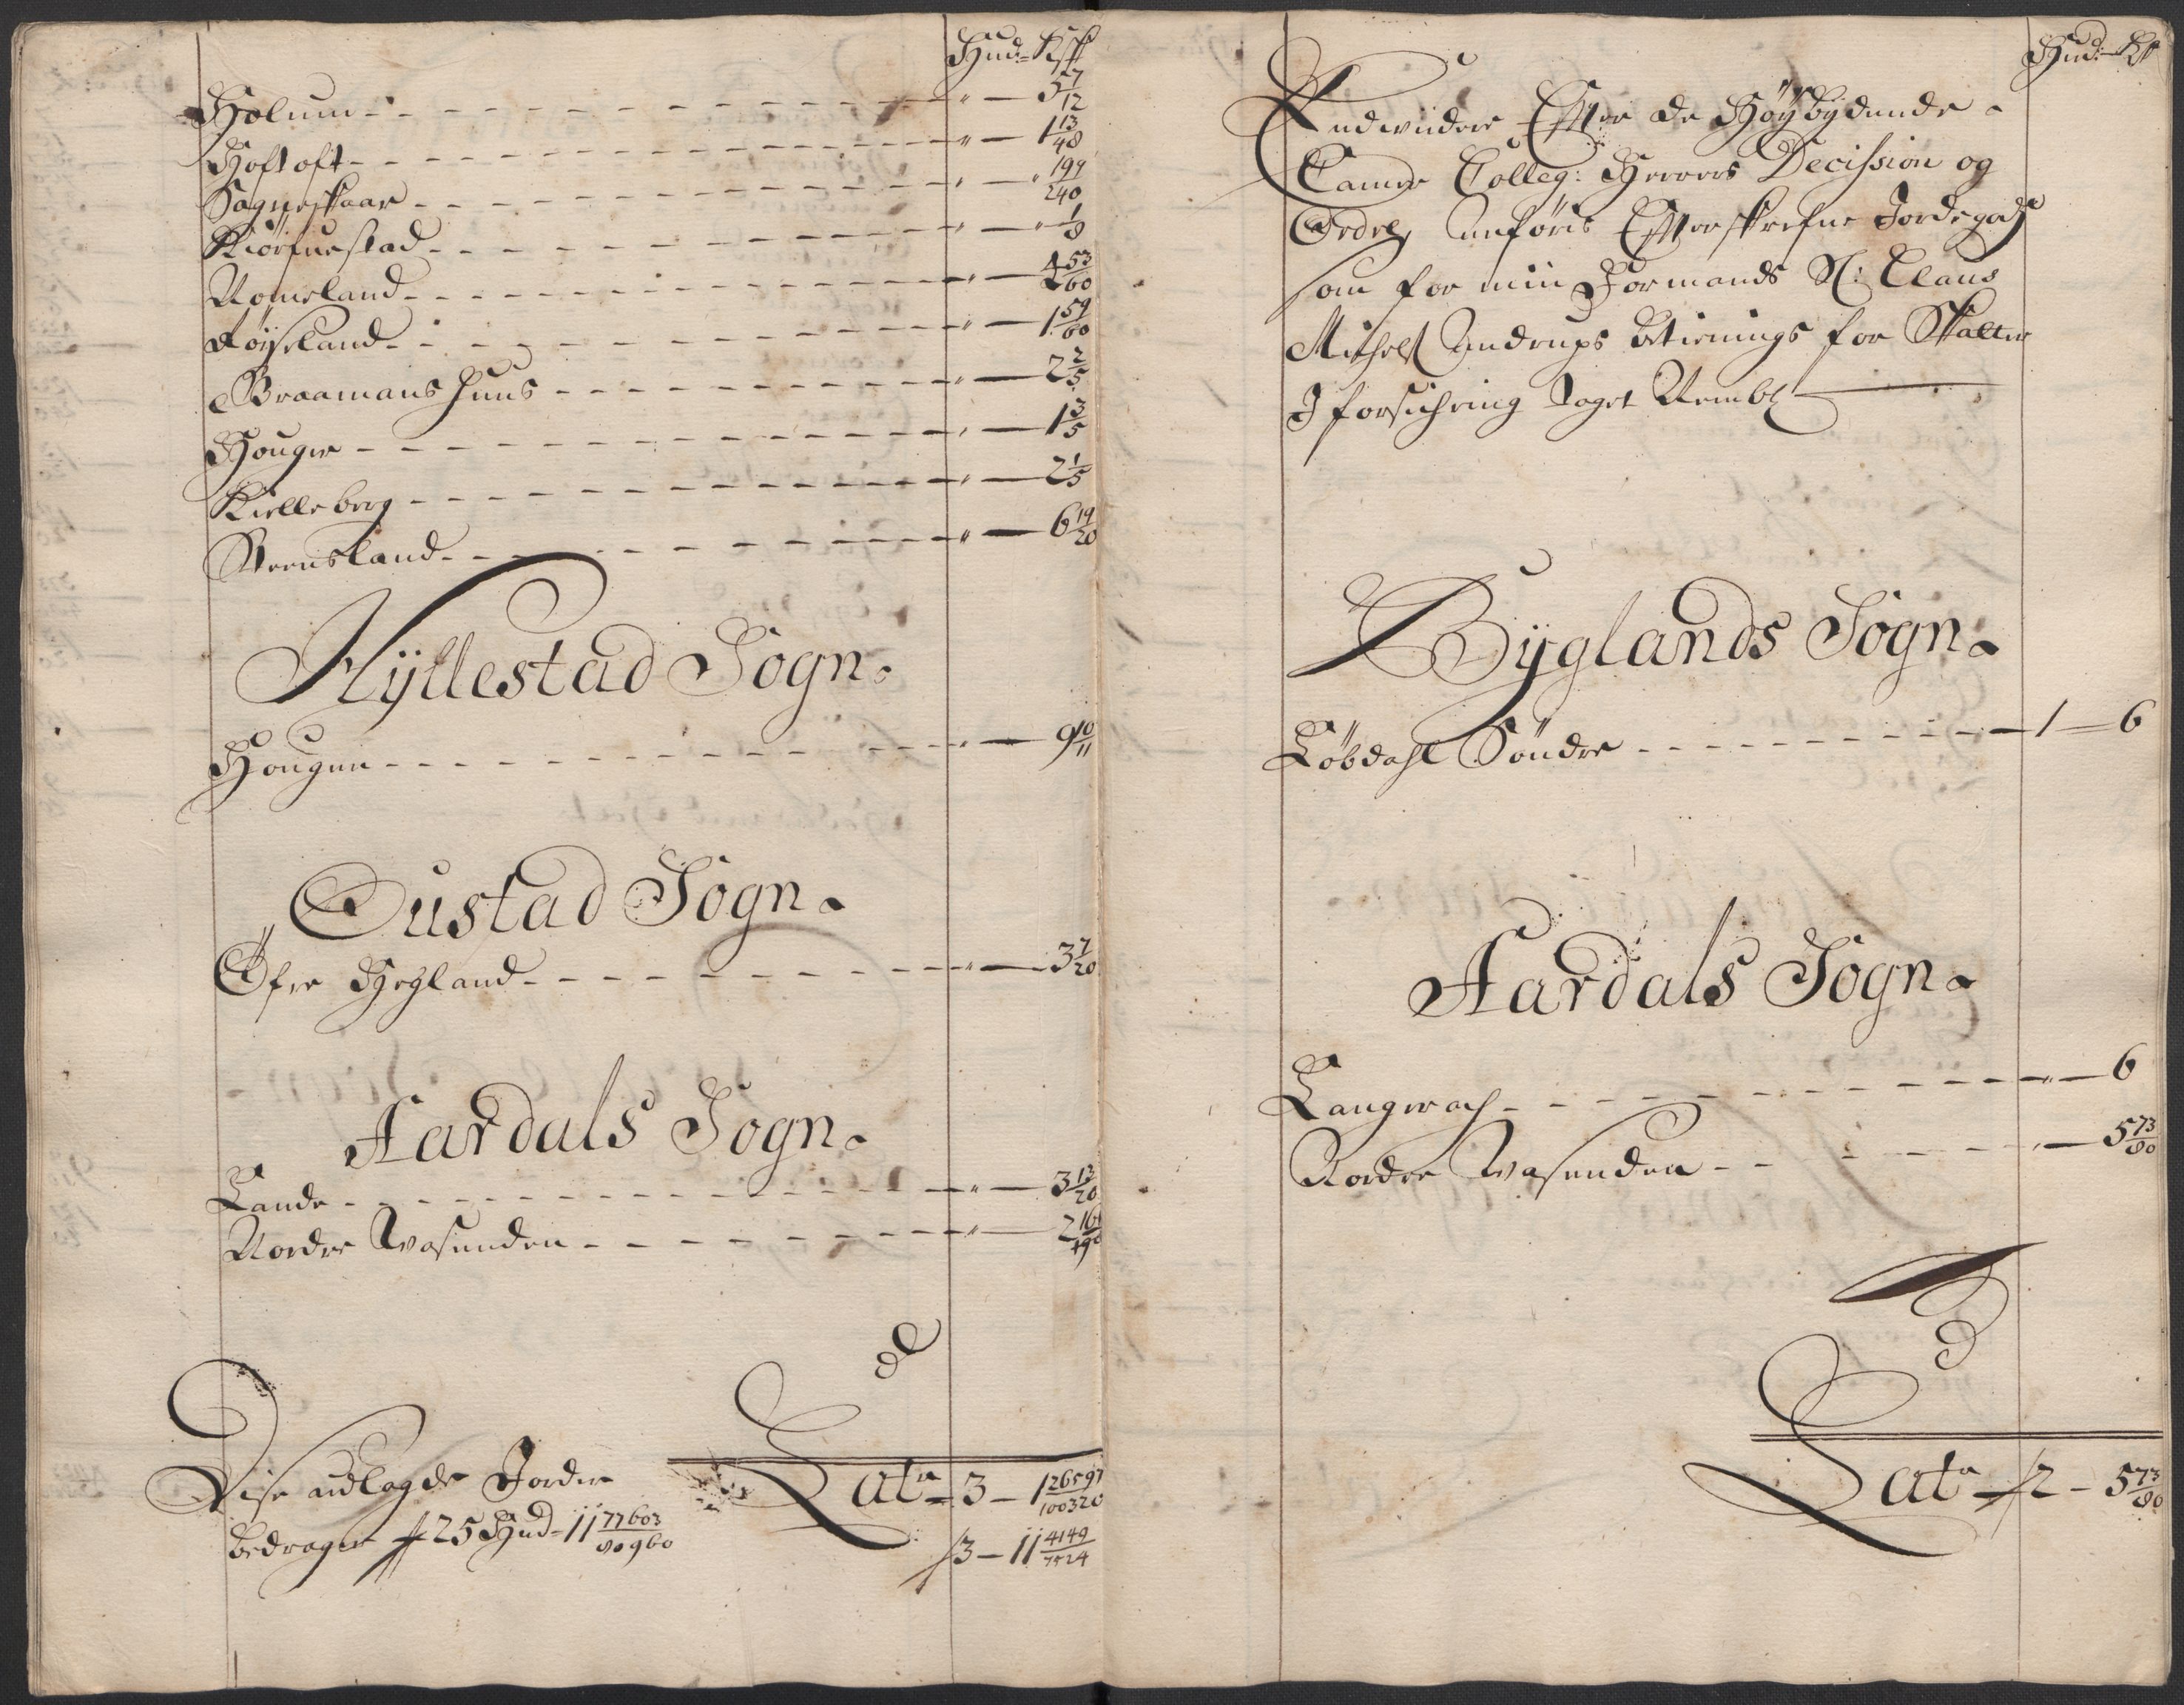 Hud:- Kff
Holum - - - " — 5 7/12
Hoftoft - - - " — 1 13/48
Sagneskaar - - - " — " 197/240
Kiörfnestad - - - " — " 1/8
Romeland - - - " — 4 53/60
Röyseland - - - " — 1 59/60
Braamans huus - - - " — 2 2/5
Houger - - - " — 1 3/5
Kielleberg - - - " — 2 1/5
Steensland - - - " — 6 19/20
Hÿllestad Sogn.
Hougen - - - " — 9 10/11
Oustad Sogn.
Öfre Hegland - - - " — 3 7/20
Aardals Sogn.
Lande - - - " — 3 13/20
Nordre Wasenden - - - " — 2
Disse udlagde Jorder
bedrager 25 Hud - 11 77603/80960
Lat: 3 - 1 26597/100320
3 - 11 4149/7524
Hud:- Kff
Endwiidere Efter de Höÿbÿdende
Camer Colleg: Herrers Decission og
Ordre, anföris Efterskrefne Jordegods
som for min Formands Sl: Claus
Michels Andrups betienings for Skatter
J forsichring taget Nembl:
Bÿglands Sogn.
Löbdahl Söndre - - - 1 — 6
Aardals Sogn.
Langerach - - - " — 6
Nordre Wasenden - - - " — 5 73/80
Lat: 2 - 5 73/80